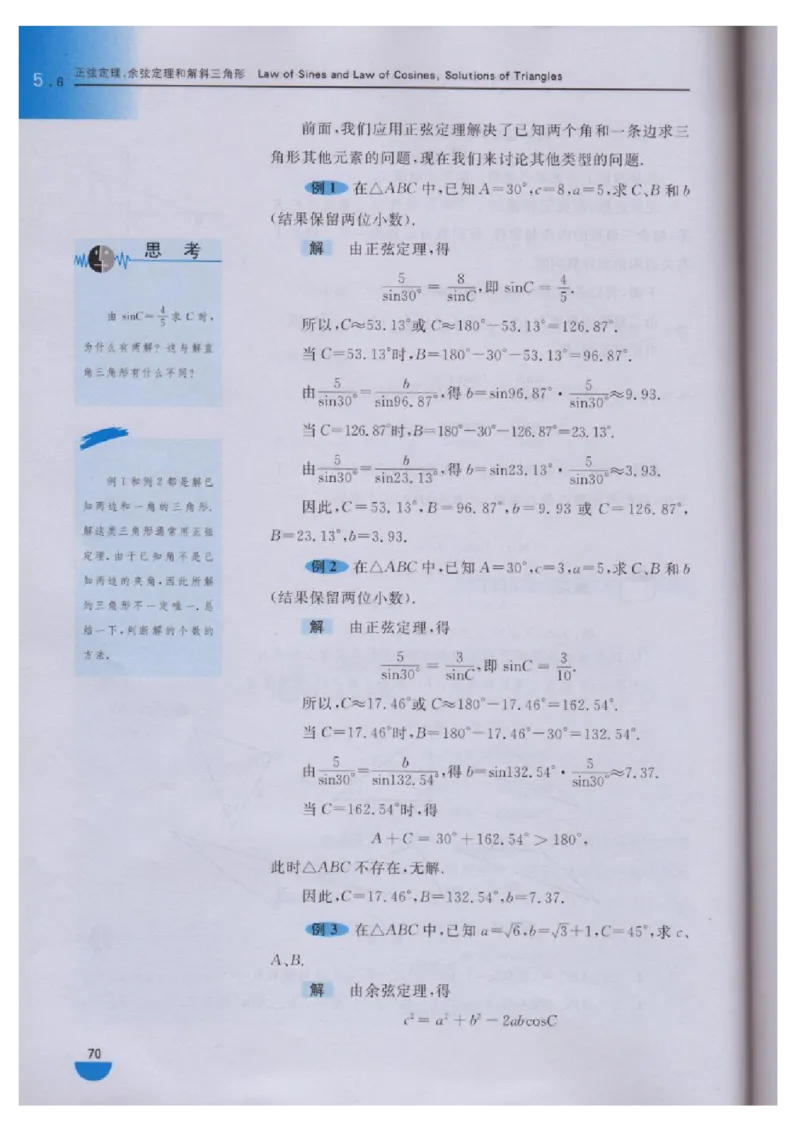 5.6 正弦定理、余弦定理和解斜三角形 Law of Sines and Law of Cosines, Solutions of Triangles
前面,我们应用正弦定理解决了已知两个角和一条边求三
角形其他元素的问题,现在我们来讨论其他类型的问题.
例1 在△ABC中,已知A=30°,c=8,a=5,求C、B和b
(结果保留两位小数).
解 由正弦定理,得
5/sin30° = 8/sinC,即 sinC = 4/5.
所以,C≈53.13°或C≈180°-53.13°=126.87°.
当C=53.13°时,B=180°-30°-53.13°=96.87°.
由 5/sin30° = b/sin96.87°,得 b=sin96.87°·5/sin30°≈9.93.
当C=126.87°时,B=180°-30°-126.87°=23.13°.
由 5/sin30° = b/sin23.13°,得 b=sin23.13°·5/sin30°≈3.93.
因此,C=53.13°,B=96.87°,b=9.93 或 C=126.87°,
B=23.13°,b=3.93.
例2 在△ABC中,已知A=30°,c=3,a=5,求C、B和b
(结果保留两位小数).
解 由正弦定理,得
5/sin30° = 3/sinC,即 sinC = 3/10.
所以,C≈17.46°或C≈180°-17.46°=162.54°.
当C=17.46°时,B=180°-17.46°-30°=132.54°.
由 5/sin30° = b/sin132.54°,得 b=sin132.54°·5/sin30°≈7.37.
当C=162.54°时,得
A+C = 30°+162.54° > 180°,
此时△ABC不存在,无解.
因此,C=17.46°,B=132.54°,b=7.37.
例3 在△ABC中,已知a=√6,b=√3+1,C=45°,求c、
A、B.
解 由余弦定理,得
c² = a² + b² - 2abcosC
思 考
由 sinC=4/5 求C时,
为什么有两解? 这与解直
角三角形有什么不同?
例1和例2都是解已
知两边和一角的三角形.
解这类三角形通常用正弦
定理.由于已知角不是已
知两边的夹角,因此所解
的三角形不一定唯一.总
结一下,判断解的个数的
方法.
70